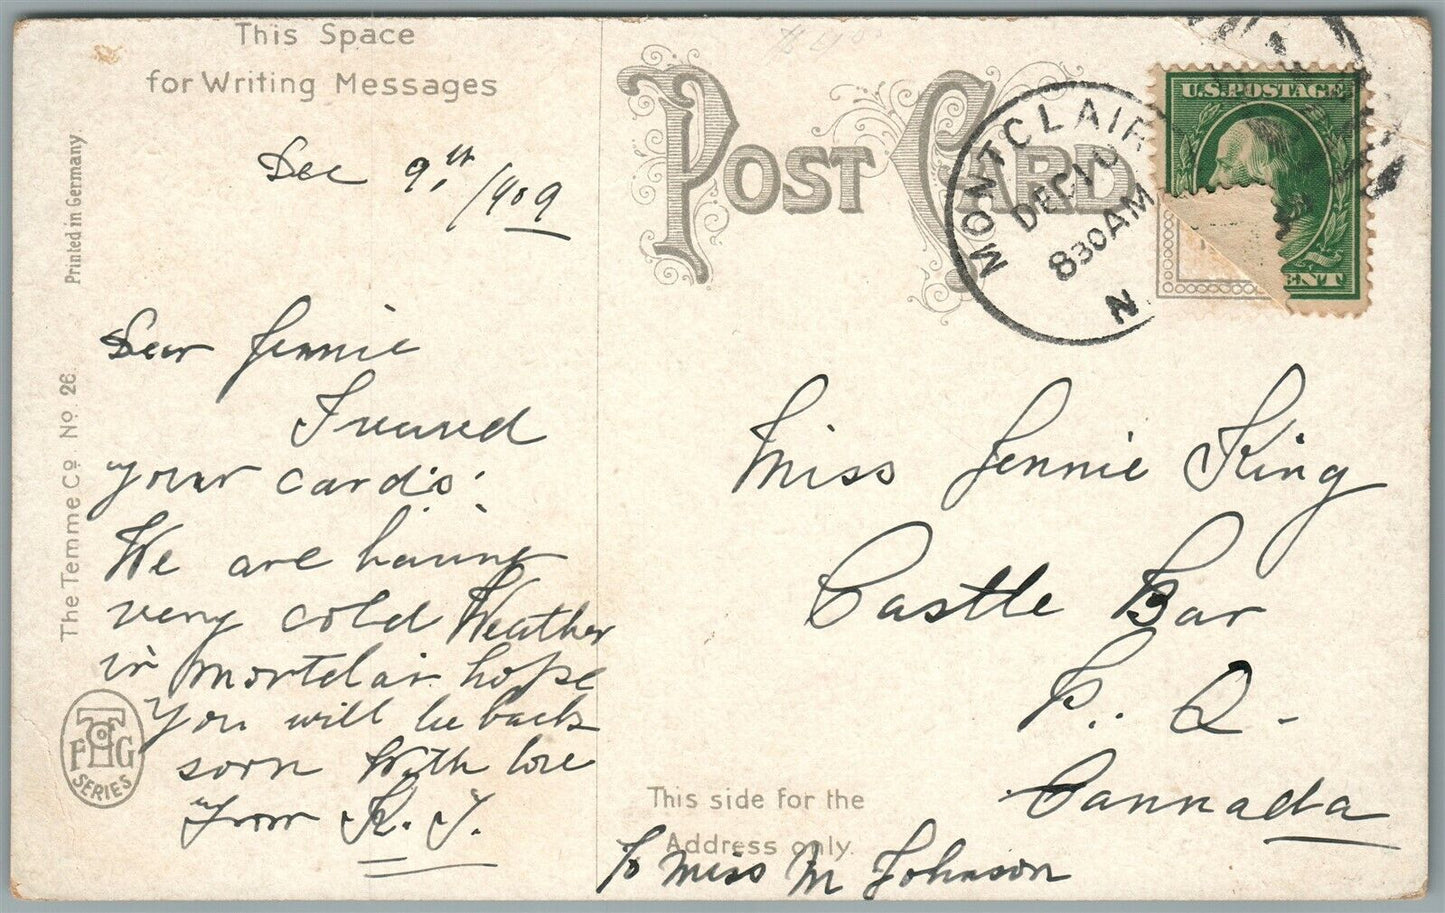 This Space
for Writing Messages
Dec 9th/1909
Dear Jennie
I recieved
your card's.
We are having
very cold Weather
in Montclair hope
You will be back
soon With love
from
Printed in Germany
The Temme Co. No. 26.
T Co
F G
SERIES
POST CARD
MONTCLAIR
DEC 10
830AM
N.
U.S. POSTAGE
ENT
Miss Jennie King
Castle Bar
P. Q.
Cannada
This side for the
Address only.
c/o Miss M Johnson